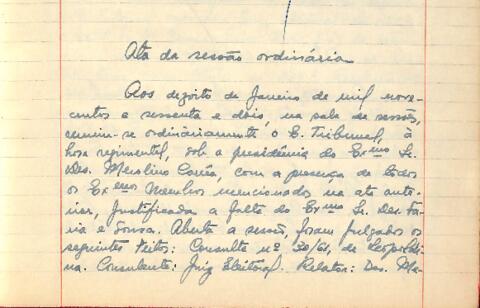 Ata da sessão ordinária
Aos dezoito de Janeiro de mil nove-
centos e sessenta e dois, na sala de sessões,
reuniu-se ordinariamente o E. Tribunal, à
hora regimental, sob a presidência do Exmo Sr.
Des. Merolino Corrêa, com a presença de todos
os Exmos Membros mencionados na ata ante-
rior, justificada a falta do Exmo Sr. Des. Fa-
ria e Sousa. Aberta a sessão, foram julgados os
seguintes feitos: Consulta nº 30/61, de Leopoldi-
na. Consulente: Juiz Eleitoral. Relator: Des. Me-